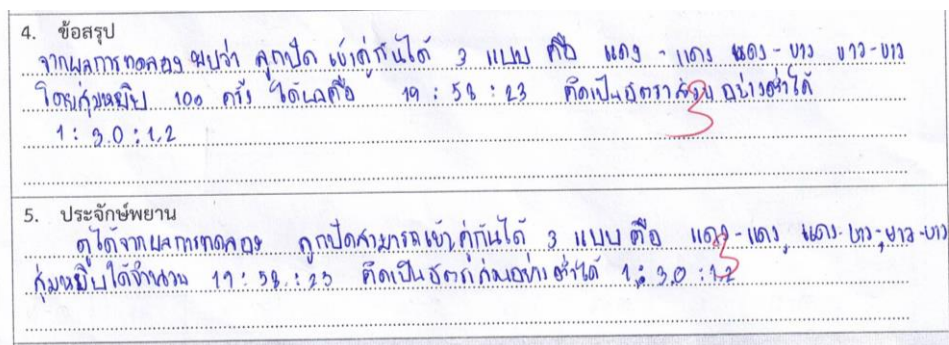 4. ข้อสรุป
จากผลการทดลอง พบว่า ลูกปัด เข้าคู่กันได้ 3 แบบ คือ แดง - แดง แดง - ขาว ขาว - ขาว
โดยสุ่มหยิบ 100 ครั้ง ได้ผลคือ 19 : 58 : 23 คิดเป็นอัตราส่วน อย่างต่ำได้
1 : 3.0 : 1.2
5. ประจักษ์พยาน
ดูได้จากผลการทดลอง ลูกปัดสามารถเข้าคู่กันได้ 3 แบบ คือ แดง - แดง, แดง - ขาว, ขาว - ขาว
สุ่มหยิบได้จำนวน 19 : 58 : 23 คิดเป็นอัตราส่วนอย่างต่ำได้ 1 : 3.0 : 1.2